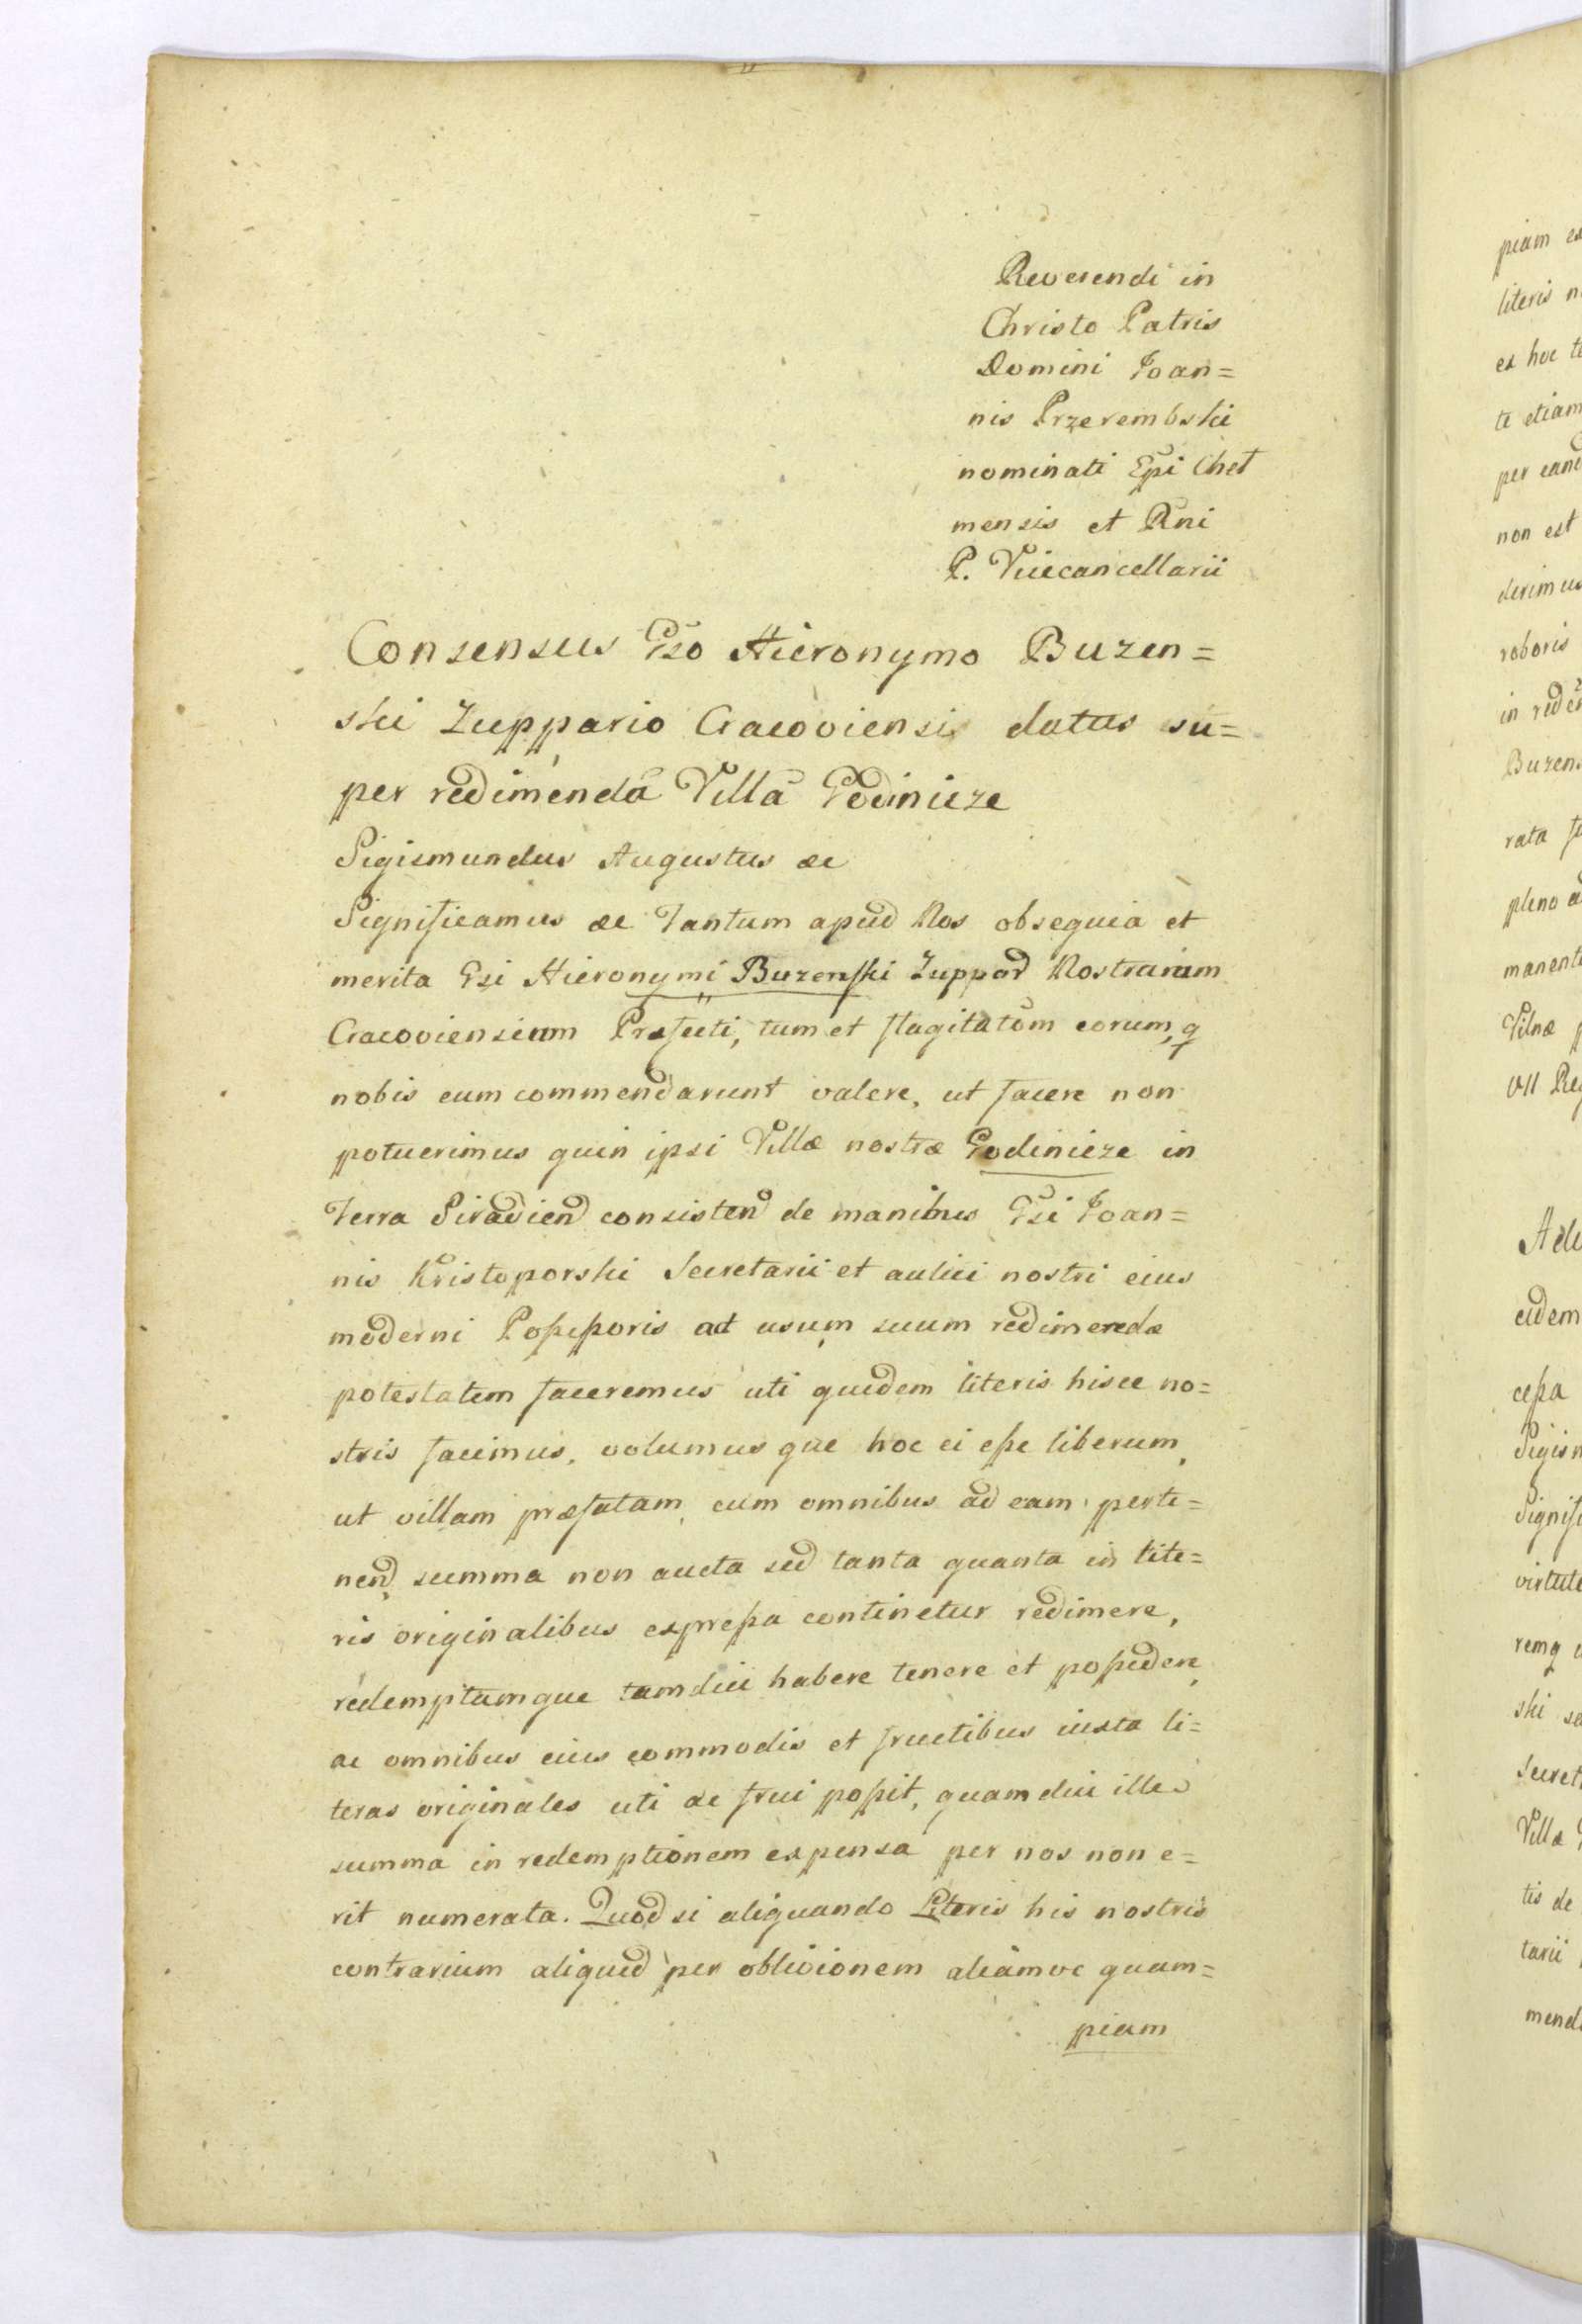 Reverendi in
Christo Patris
Domini Joan=
nis Przerembski
nominati Epi Chel
mensis et Rni
P. Vicecancellarii
Consensus Gso Hieronymo Buzen=
ski Zuppario Cracoviensi datus su=
per redimenda Villa Godinicze
Sigismundus Augustus ac
Significamus ac Tantum apud Nos obsequia et
merita Gsi Hieronymi Buzenski Zuppar Nostrarum
Cracoviensium Præfecti, tum et flagitatom eorum, q
nobis eum commendarunt valere, ut facere non
potuerimus quin ipsi Villæ nostræ Godinicze in
Terra Siradien consisten de manibus Gsi Joan=
nis Kristoporski Secretarii et aulici nostri eius
moderni Possessoris ad usum suum redimendæ
potestatem faceremus uti quidem literis hisce no=
stris facimus, volumus que hoc ei esse liberum,
ut villam præfatam cum omnibus ad eam perti=
nen, summa non aucta sed tanta quanta in lite=
ris originalibus expressa continetur redimere,
redemptamque tamdiu habere tenere et possidere,
ac omnibus eius commodis et fructibus iuxta li=
teras originales uti ac frui possit, quam diu illa
summa in redemptionem expensa per nos non e=
rit numerata. Quod si aliquando Literis his nostris
contrarium aliquid per oblivionem aliamve quam=
piam
piam
literis
ex hoc
te etiam
per
non est
derimus
roboris
in
Buzens
rata
pleno
manent
Vilnæ
VII Reg
eidem
cessa
Sigism
Signifi
virtute
remq
ski
Secret
Villæ
tis de
tarii
mend